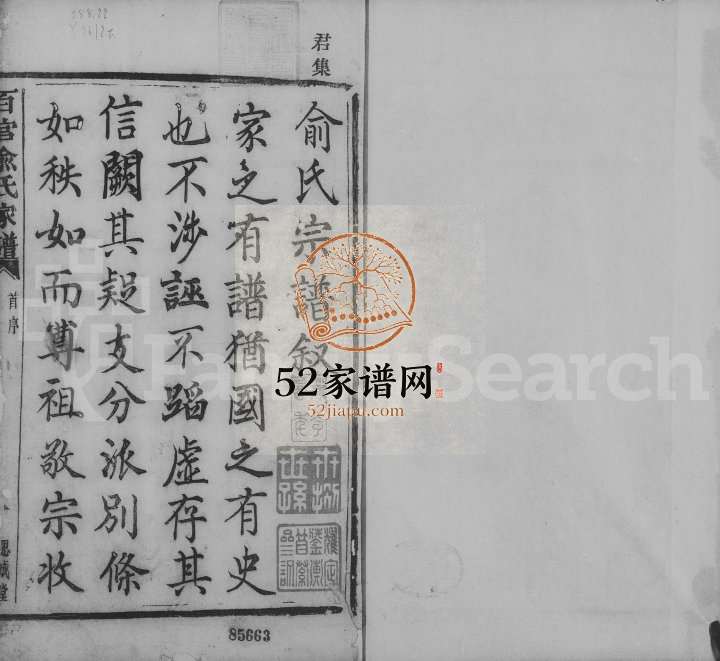 288.22
君集
俞氏宗譜叙
家之有譜猶國之有史
也不涉誣不蹈虛存其
信闕其疑支分派別條
如秩如而尊祖敬宗收
百官俞氏家譜
首序
思誠堂
85663
52家谱网
52jiapu.com
FamilySearch